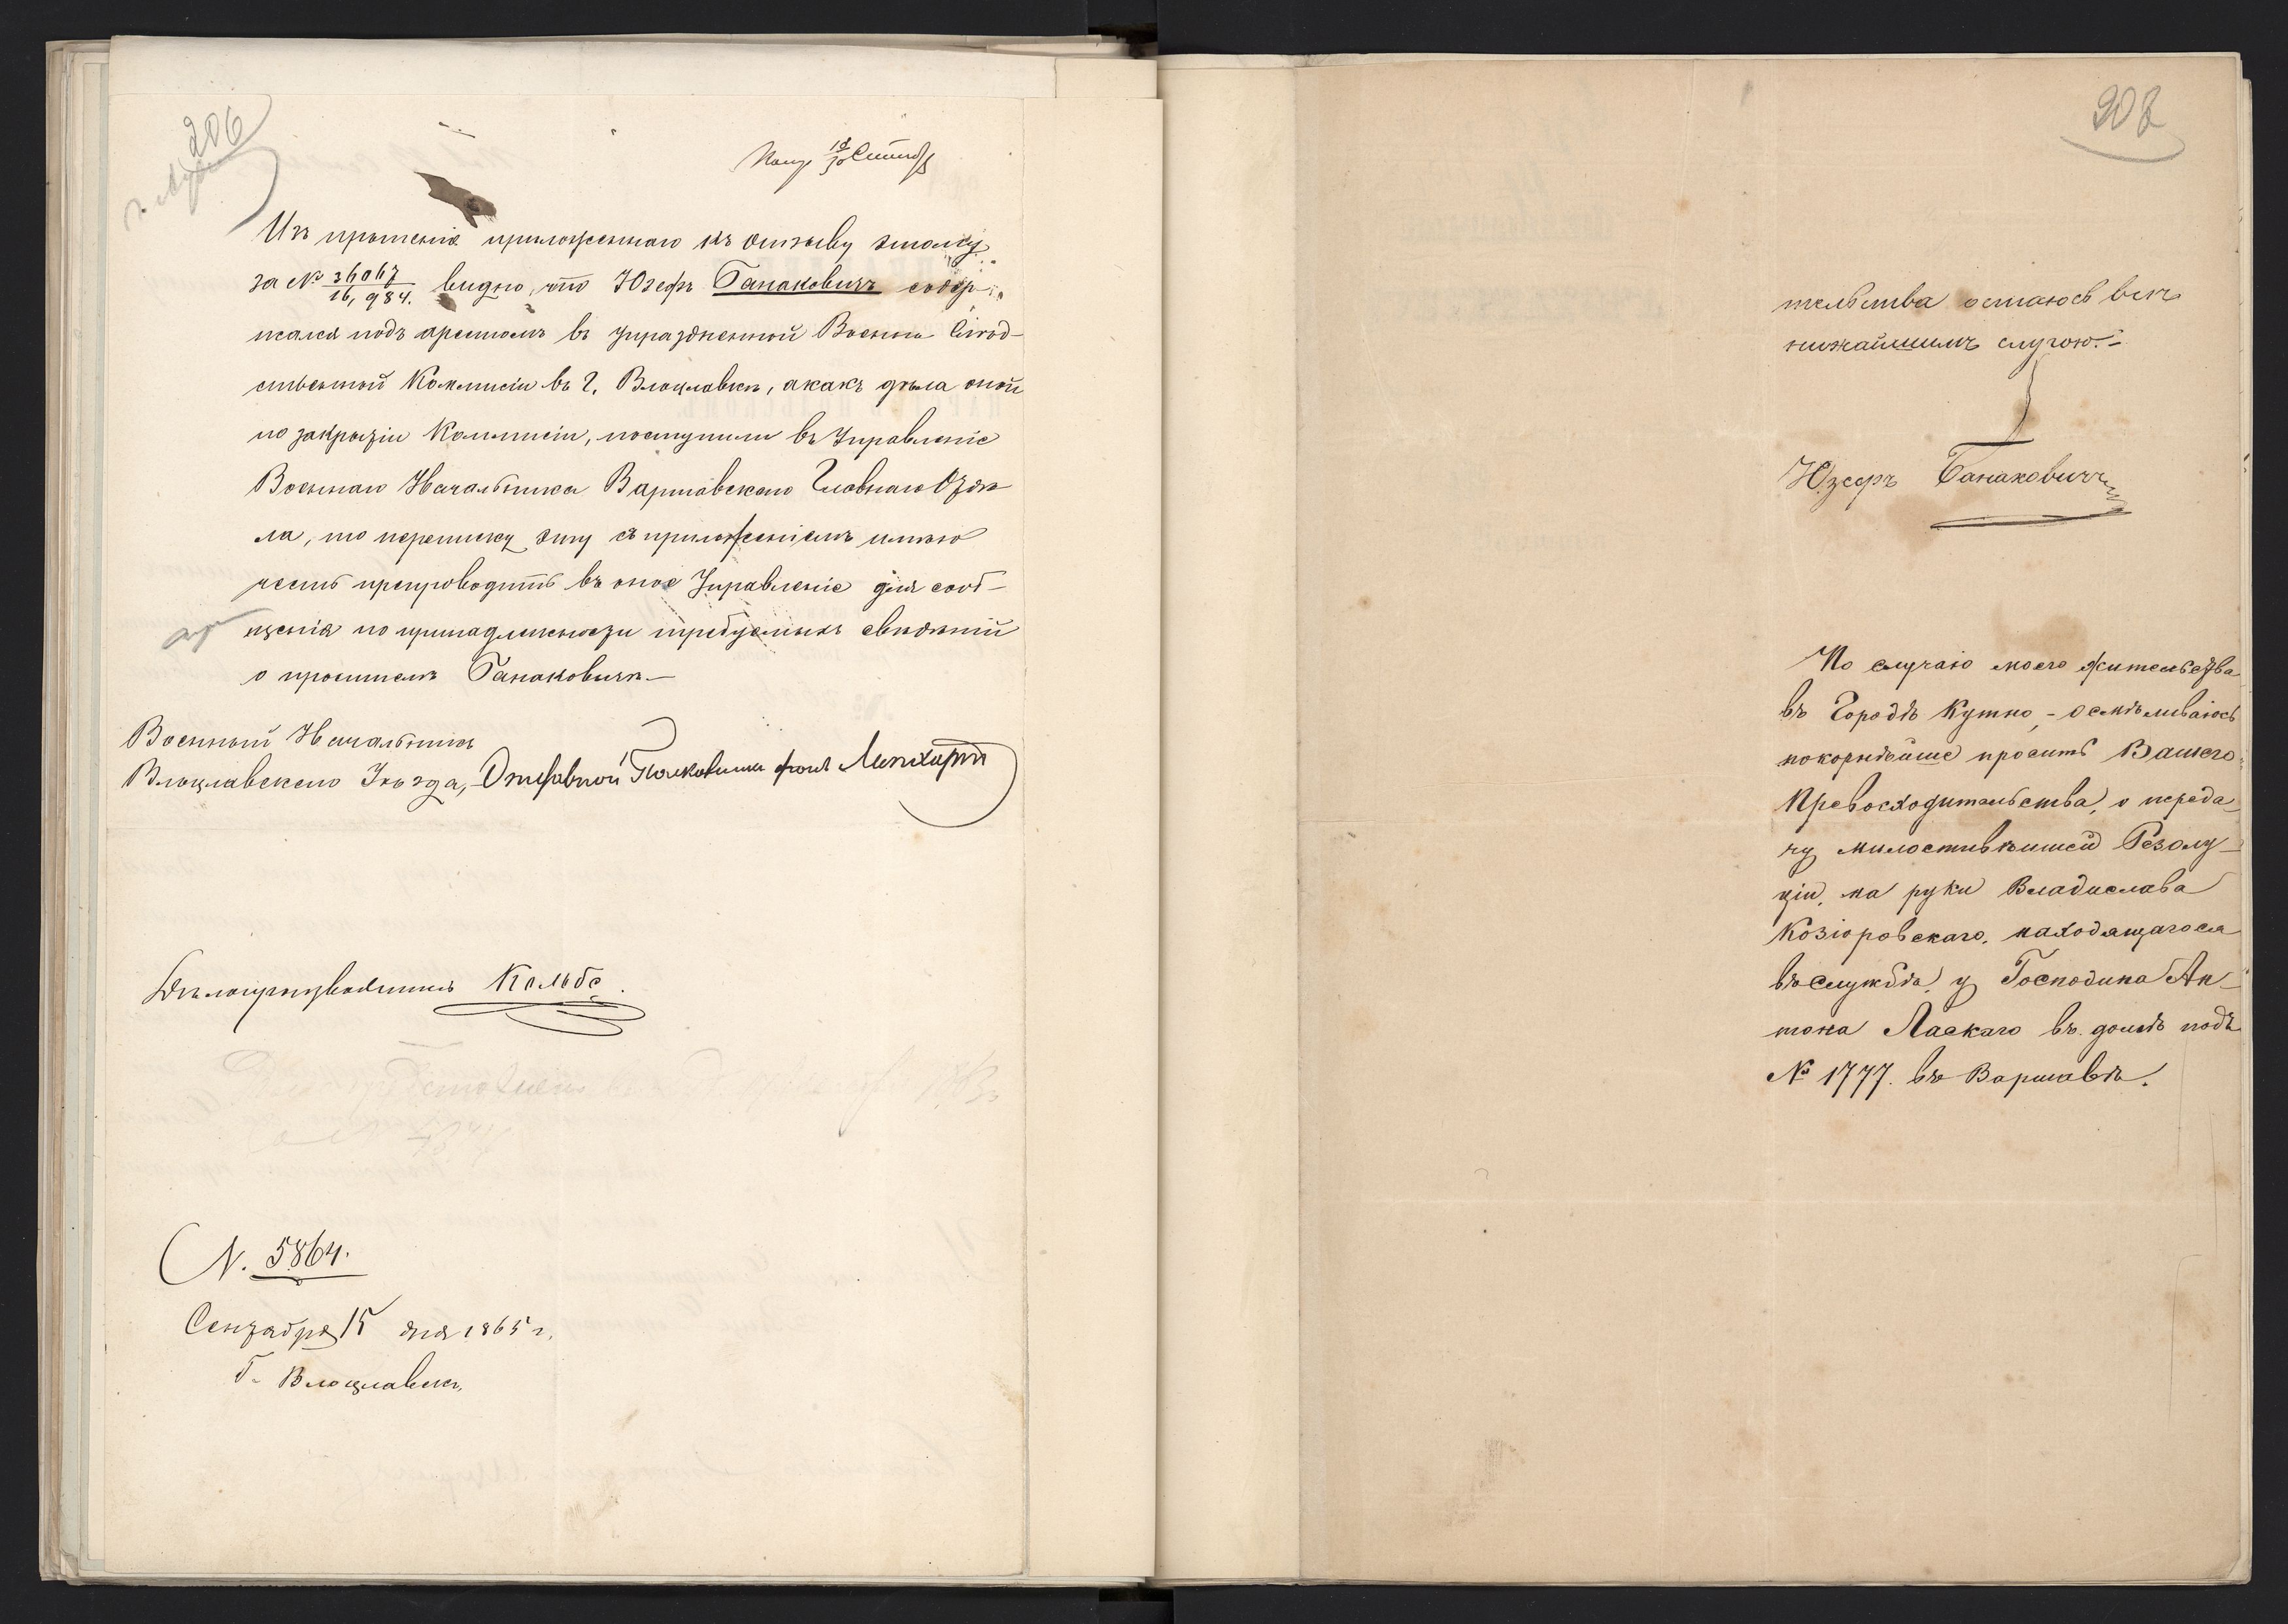 206
Изъ прошенія приложеннаго къ отзыву этому
за № 36067/16,984. видно, что Юзефъ Банаковичъ содер-
жался подъ арестомъ въ упраздненной Военно Слѣд-
ственной Коммисіи въ г. Влоцлавкѣ, а какъ дѣла оной
по закрытіи Коммисіи, поступили въ Управленіе
Военнаго Начальника Варшавскаго Главнаго Отдѣ
ла, то переписку эту съ приложеніемъ имѣю
честь препроводить въ оное Управленіе для сооб-
щенія по принадлежности требуемыхъ свѣдѣній
о просителѣ Банаковичѣ.—
Военный Начальникъ
Влоцлавскаго Уѣзда, Отставной Полковникъ фонъ
Дѣлопроизводитель Кольбе.
N. 5864.
Сентября 15 дня 1865 г.
Г. Влоцлавскъ.
208
тельства остаюсь всѣ
нижайшимъ слугою.-
Юзефъ Банаковичъ
По случаю моего жительства
въ Городѣ Кутно, - осмѣливаюсь
покорнѣйше просить Вашего
Превосходительства, о переда
чу милостивѣйшей Резолу-
ціи, на руки Владислава
Козіоровскаго, находящагося
въ службѣ, у Господина Ан-
тона Ласкаго въ домѣ подъ
№ 1777. въ Варшавѣ.